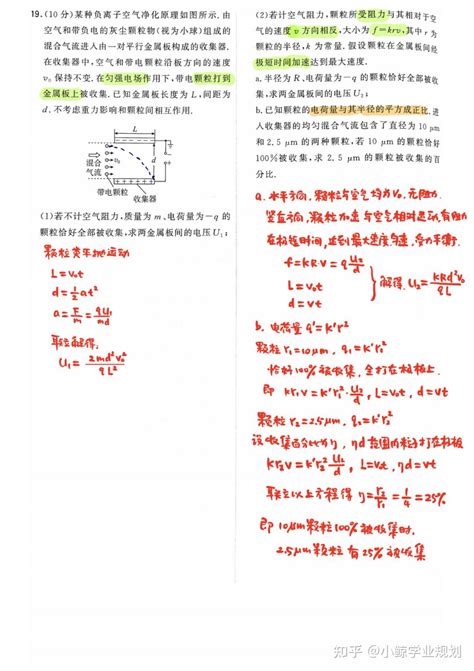 19.(10分)某种负离子空气净化原理如图所示.由
空气和带负电的灰尘颗粒物(视为小球)组成的
混合气流进入由一对平行金属板构成的收集器.
在收集器中,空气和带电颗粒沿板方向的速度
v₀保持不变.在匀强电场作用下,带电颗粒打到
金属板上被收集.已知金属板长度为L,间距为
d.不考虑重力影响和颗粒间相互作用.
L
混合
气流
v₀
d
+
−
带电颗粒
收集器
(1)若不计空气阻力,质量为m、电荷量为−q的
颗粒恰好全部被收集,求两金属板间的电压U₁;
颗粒类平抛运动
L=v₀t
d=½at²
a=F/m=qU₁/md
联立解得:
U₁=2md²v₀²/qL²
(2)若计空气阻力,颗粒所受阻力与其相对于空
气的速度v方向相反,大小为f=krv,其中r为
颗粒的半径,k为常量.假设颗粒在金属板间经
极短时间加速达到最大速度.
a.半径为R、电荷量为−q的颗粒恰好全部被收
集,求两金属板间的电压U₂;
b.已知颗粒的电荷量与其半径的平方成正比.进
入收集器的均匀混合气流包含了直径为10 μm
和2.5 μm的两种颗粒,若10 μm的颗粒恰好
100%被收集,求2.5 μm的颗粒被收集的百
分比.
a.水平方向,颗粒与空气均为v₀,无阻力.
竖直方向,颗粒加速与空气相对运动,有阻力
在极短时间,达到最大速度匀速,受力平衡.
f=kRv=qU₂/d
L=v₀t
d=vt
解得:U₂=kRd²v₀/qL
b.电荷量q'=k'r²
颗粒r₁=10μm,q₁=k'r₁²
恰好100%被收集,全打在极板上.
即kr₁v=k'r₁²·U₂/d,L=v₀t,d=vt
颗粒r₂=2.5μm,q₂=k'r₂²
设收集百分比为η,ηd范围内粒子打在极板
kr₂v=k'r₂²U₂/d,L=v₀t,ηd=vt
联立以上方程得η=r₂/r₁=1/4=25%
即10μm颗粒100%被收集时.
2.5μm颗粒有25%被收集
知乎 @小鲸学业规划